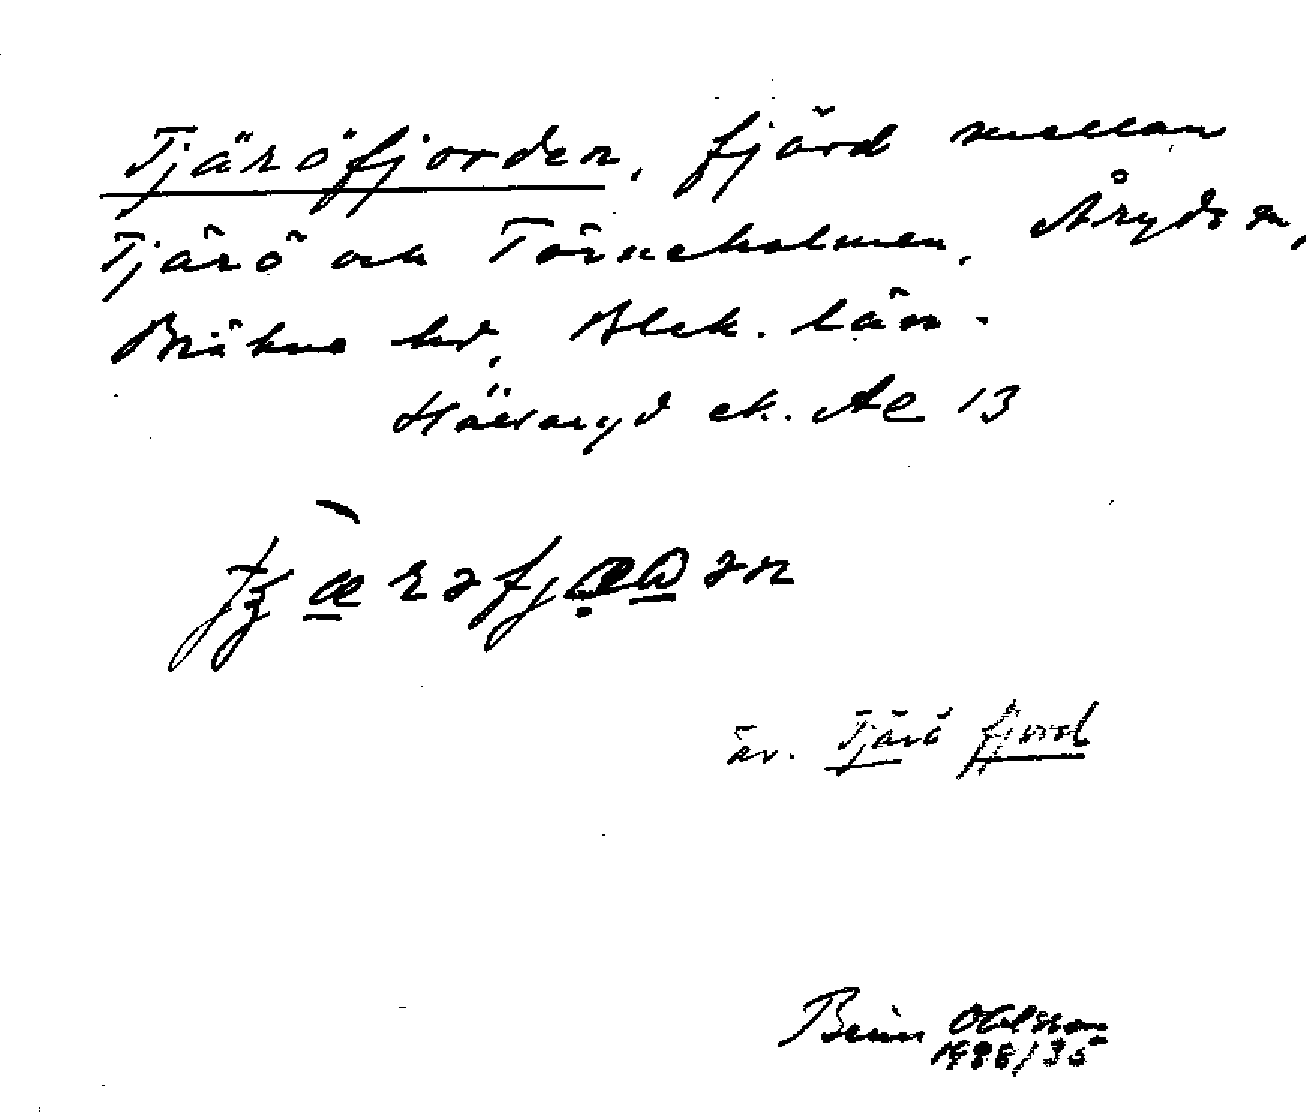 Tjäröfjorden, fjärd mellan
Tjärö och Törneholmen, Åryds sn,
Bräkne hd, Blek. län.
Hällaryd ek. Ae 13
äv. Tjärö fjord
Bror Ohlsson